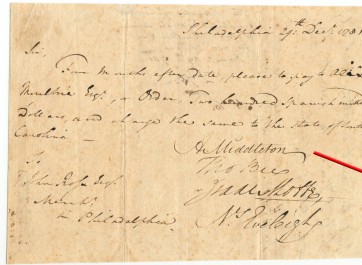 Philadelphia 29th Decr. 178
Sir,
Four Months after date please to pay to
Moultrie Esqr. or Order, Two hundred Spanish mill'd
Dollars, and charge the same to the State of South
Carolina —
A Middleton
Tho Bee
N. Eveleigh
To
John Ross Esqr
Mercht.
in Philadelphia